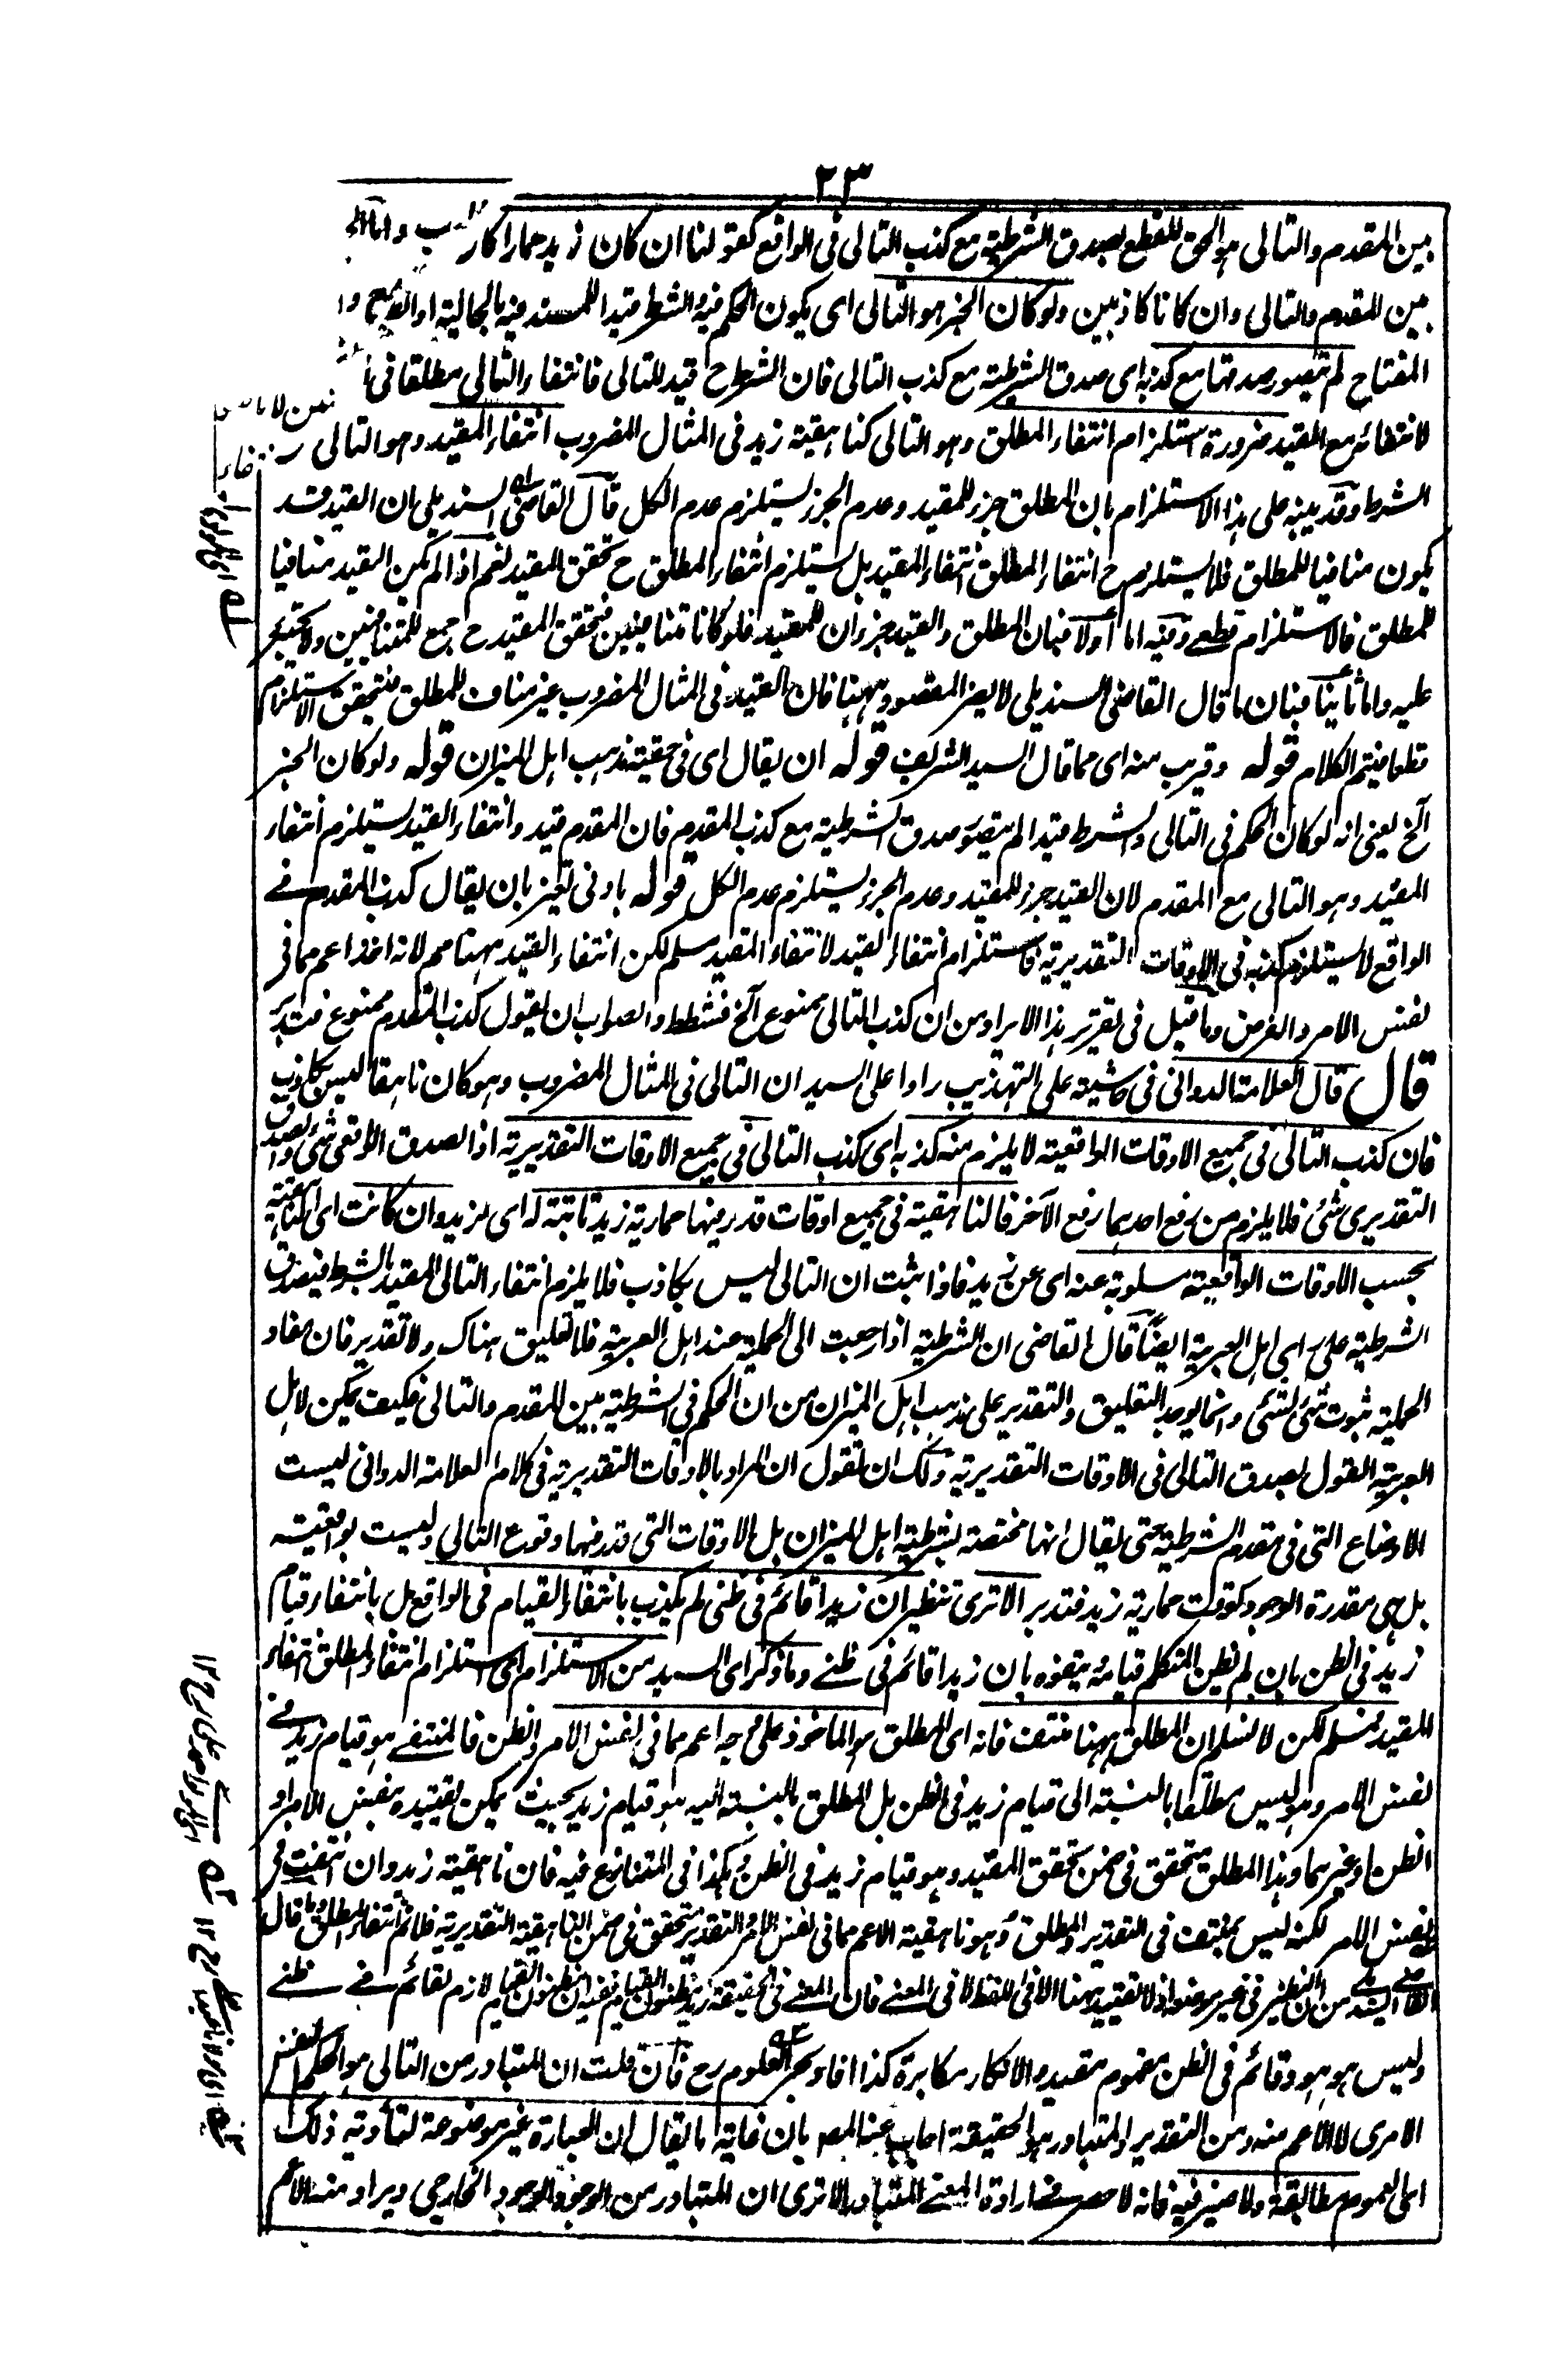 ٢٣
بين المقدم والتالى هو الحق للقطع بصدق الشرطية مع كذب التالى فى الواقع كقولنا ان كان زيد حمارا كان
بين المقدم والتالى وان كانا كاذبين ولو كان الخبر هو التالى اى يكون الحكم فيه والشرط قيدا للمسند فيه بالحالية او
المفتاح لم يتصور صدقها مع كذبه اى صدق الشرطية مع كذب التالى فان الشرط ح قيد للتالى فانتفاء التالى مطلقا فى
لانتفائه مع المقيد ضرورة استلزام انتفاء المطلق وهو التالى كناهقية زيد فى المثال المضروب انتفاء المقيد وهو التالى
الشرط وقد يبنه على هذا الاستلزام بان المطلق جزء للمقيد وعدم الجزء يستلزم عدم الكل قال القاضى السنديلى ان القيد قد
يكون منافيا للمطلق فلا يستلزم ح انتفاء المطلق انتفاء المقيد بل يستلزم انتفاء المطلق ح تحقق المقيد نعم اذا لم يكن المقيد منافيا
للمطلق فالاستلزام قطعے وفيه اما اولا فبان المطلق والقيد جزءان للمقيد فلو كانا متنافيين فتحقق المقيد ح جمع للمتنافيين ولا
عليه واما ثانيا فبان ما قال القاضى السنديلى لا يضر المقصود ههنا فان القيد فى المثال المضروب غير مناف للمطلق فتحقق الاستلزام
قطعا فيتم الكلام قوله وقريب منه اى مما قال السيد الشريف قوله ان يقال اى فى حقية مذهب اهل الميزان قوله ولو كان الخبر
آلخ يعنى انه لو كان الحكم فى التالى والشرط قيدا لم يتصور صدق الشرطية مع كذب المقدم فان المقدم قيد وانتفاء القيد يستلزم انتفاء
المقيد وهو التالى مع المقدم لان القيد جزء للمقيد وعدم الجزء يستلزم عدم الكل قوله بادنى تغير بان يقال كذب المقدم فے
الواقع لا يستلزم كذبه فى الاوقات التقديرية فاستلزام انتفاء القيد لانتفاء المقيد مسلم لكن انتفاء القيد ههنا مم لانه اخذ اعم مما فى
نفس الامر والفرض وما قيل فى تقرير هذا الايراد من ان كذب التالى ممنوع آلخ فشطط والصواب ان يقول كذب المقدم ممنوع فتدبر
قال قال العلامة الدوانى فى حاشيته على التهذيب رادا على السيد ان التالى فى المثال المضروب وهو كان ناهقا ليس بكاذب
فان كذب التالى فى جميع الاوقات الواقعية لا يلزم منه كذبه اى كذب التالى فى جميع الاوقات التقديرية اذ الصدق الواقعى شئ والصدق
التقديرى شئ فلا يلزم من رفع احدهما رفع الآخر فالناهقية فى جميع اوقات قدر فيها حمارية زيد ثابتة له اى لزيد وان كانت اى الناهقية
بحسب الاوقات الواقعية مسلوبة عنه اى عن زيد فاذا ثبت ان التالى ليس بكاذب فلا يلزم انتفاء التالى المقيد بالشرط فيصدق
الشرطية على راى اهل العربية ايضا قال القاضى ان الشرطية اذا رجعت الى الحملية عند اهل العربية فلا تعليق هناك ولا تقدير فان مفاد
الحملية ثبوت شئ لشئ وانما يوجد التعليق والتقدير على مذهب اهل الميزان من ان الحكم فى الشرطية بين المقدم والتالى فكيف يمكن لاهل
العربية القول بصدق التالى فى الاوقات التقديرية ولك ان تقول ان المراد بالاوقات التقديرية فى كلام العلامة الدوانى ليست
الاوضاع التى فى مقدم الشرطية حتى يقال انها مختصة بشرطية اهل الميزان بل الاوقات التى قدر فيها وقوع التالى وليست بواقعية
بل هى مقدرة الوجود كوقت حمارية زيد فتدبر الا ترى تنظير ان زيدا قائم فى ظنى لم يكذب بانتفاء القيام فى الواقع بل بانتفاء قيام
زيد فى الظن بان لم يظن المتكلم قيامه يتفوه بان زيدا قائم فى ظنے وما ذكر اى السيد من الاستلزام اى استلزام انتفاء المطلق انتفاء
المقيد مسلم لكن لا نسلم ان المطلق ههنا منتف فانه اى المطلق هو الماخوذ على وجه اعم مما فى نفس الامر والظن فالمنتفے هو قيام زيد فے
نفس الامر وهو ليس مطلقا بالنسبة الى قيام زيد فى الظن بل المطلق بالنسبة اليه هو قيام زيد بحيث يمكن تقييده بنفس الامر او
الظن او غيرهما وهذا المطلق متحقق فى ضمن تحقق المقيد وهو قيام زيد فى الظن وهكذا فى المتنازع فيه فان ناهقية زيد وان انتفت فى
نفس الامر لكنه ليس بمنتف فى التقدير والمطلق وهو ناهقية الاعم مما فى نفس الامر والتقدير متحقق فى ضمن الناهقية التقديرية فلا ثم انتفاء المطلق وما قال
القاضے السنديلے من ان النظير فى غير موضعه اذ لا تقييد ههنا الا فى اللفظ لا فى المعنے فان المعنے فى الحقيقة زيد مظنون القيام لازم لقائم فے ظنے
وليس هو هو وقائم فى الظن مفهوم مقيد والانكار مكابرة كذا افاد بحر العلوم رح فان قلت ان المتبادر من التالى هو الحكم النفس
الامرى لا الاعم منه ومن التقدير والمتبادر هو الحقيقة اجاب عنه المصر بان غاية ما يقال ان العبارة غير موضوعة لتادية ذلك
المعنى العموم مطابقة ولا ضير فيه فانه لا حصر فے ارادة المعنے المتبادر الا ترى ان المتبادر من الوجود الوجود الخارجى ويراد منه الاعم